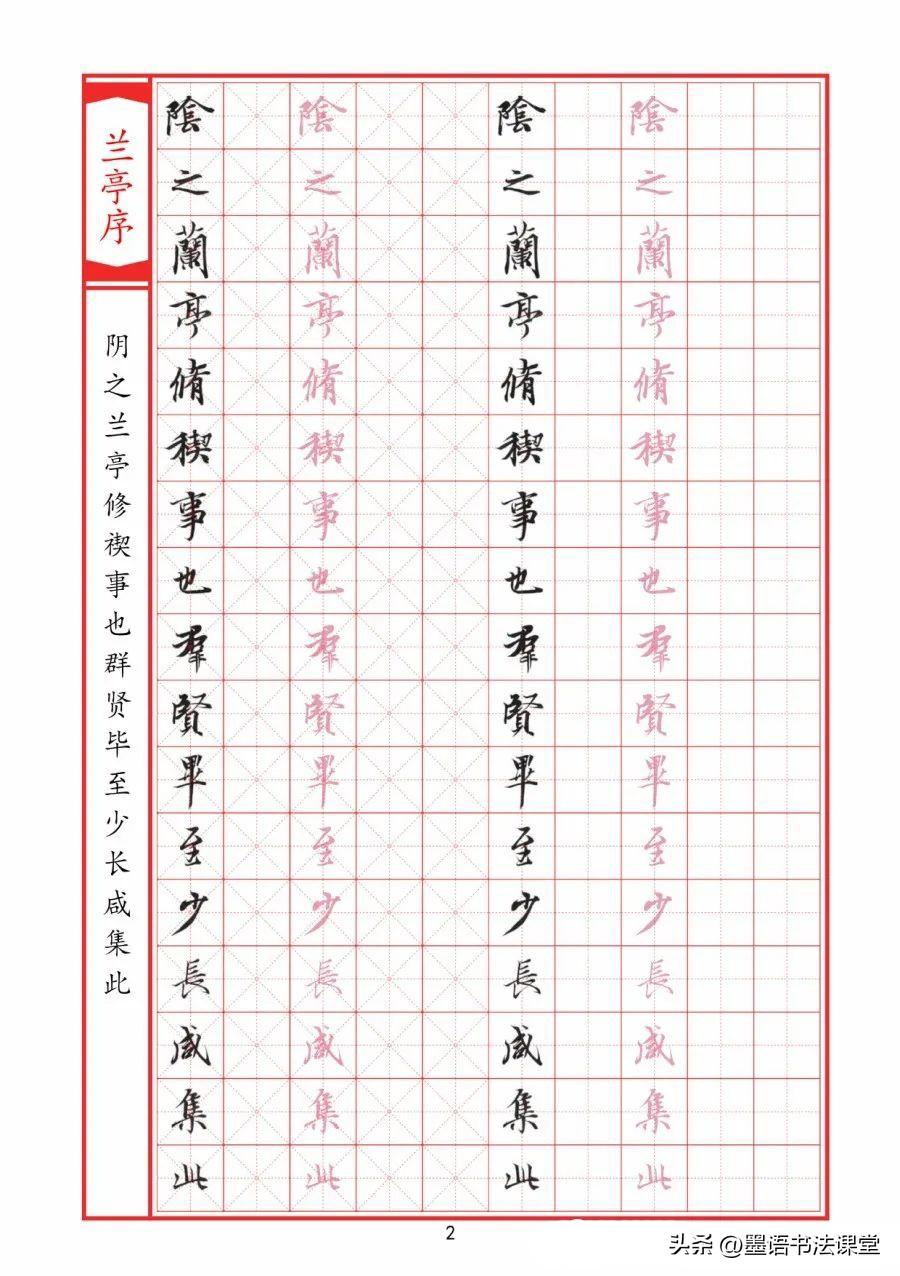 兰亭序
阴之兰亭修禊事也群贤毕至少长咸集此
陰之蘭亭脩稧事也羣賢畢至少長咸集此
陰之蘭亭脩稧事也羣賢畢至少長咸集此
陰之蘭亭脩稧事也羣賢畢至少長咸集此
陰之蘭亭脩稧事也羣賢畢至少長咸集此
2
头条 @墨语书法课堂